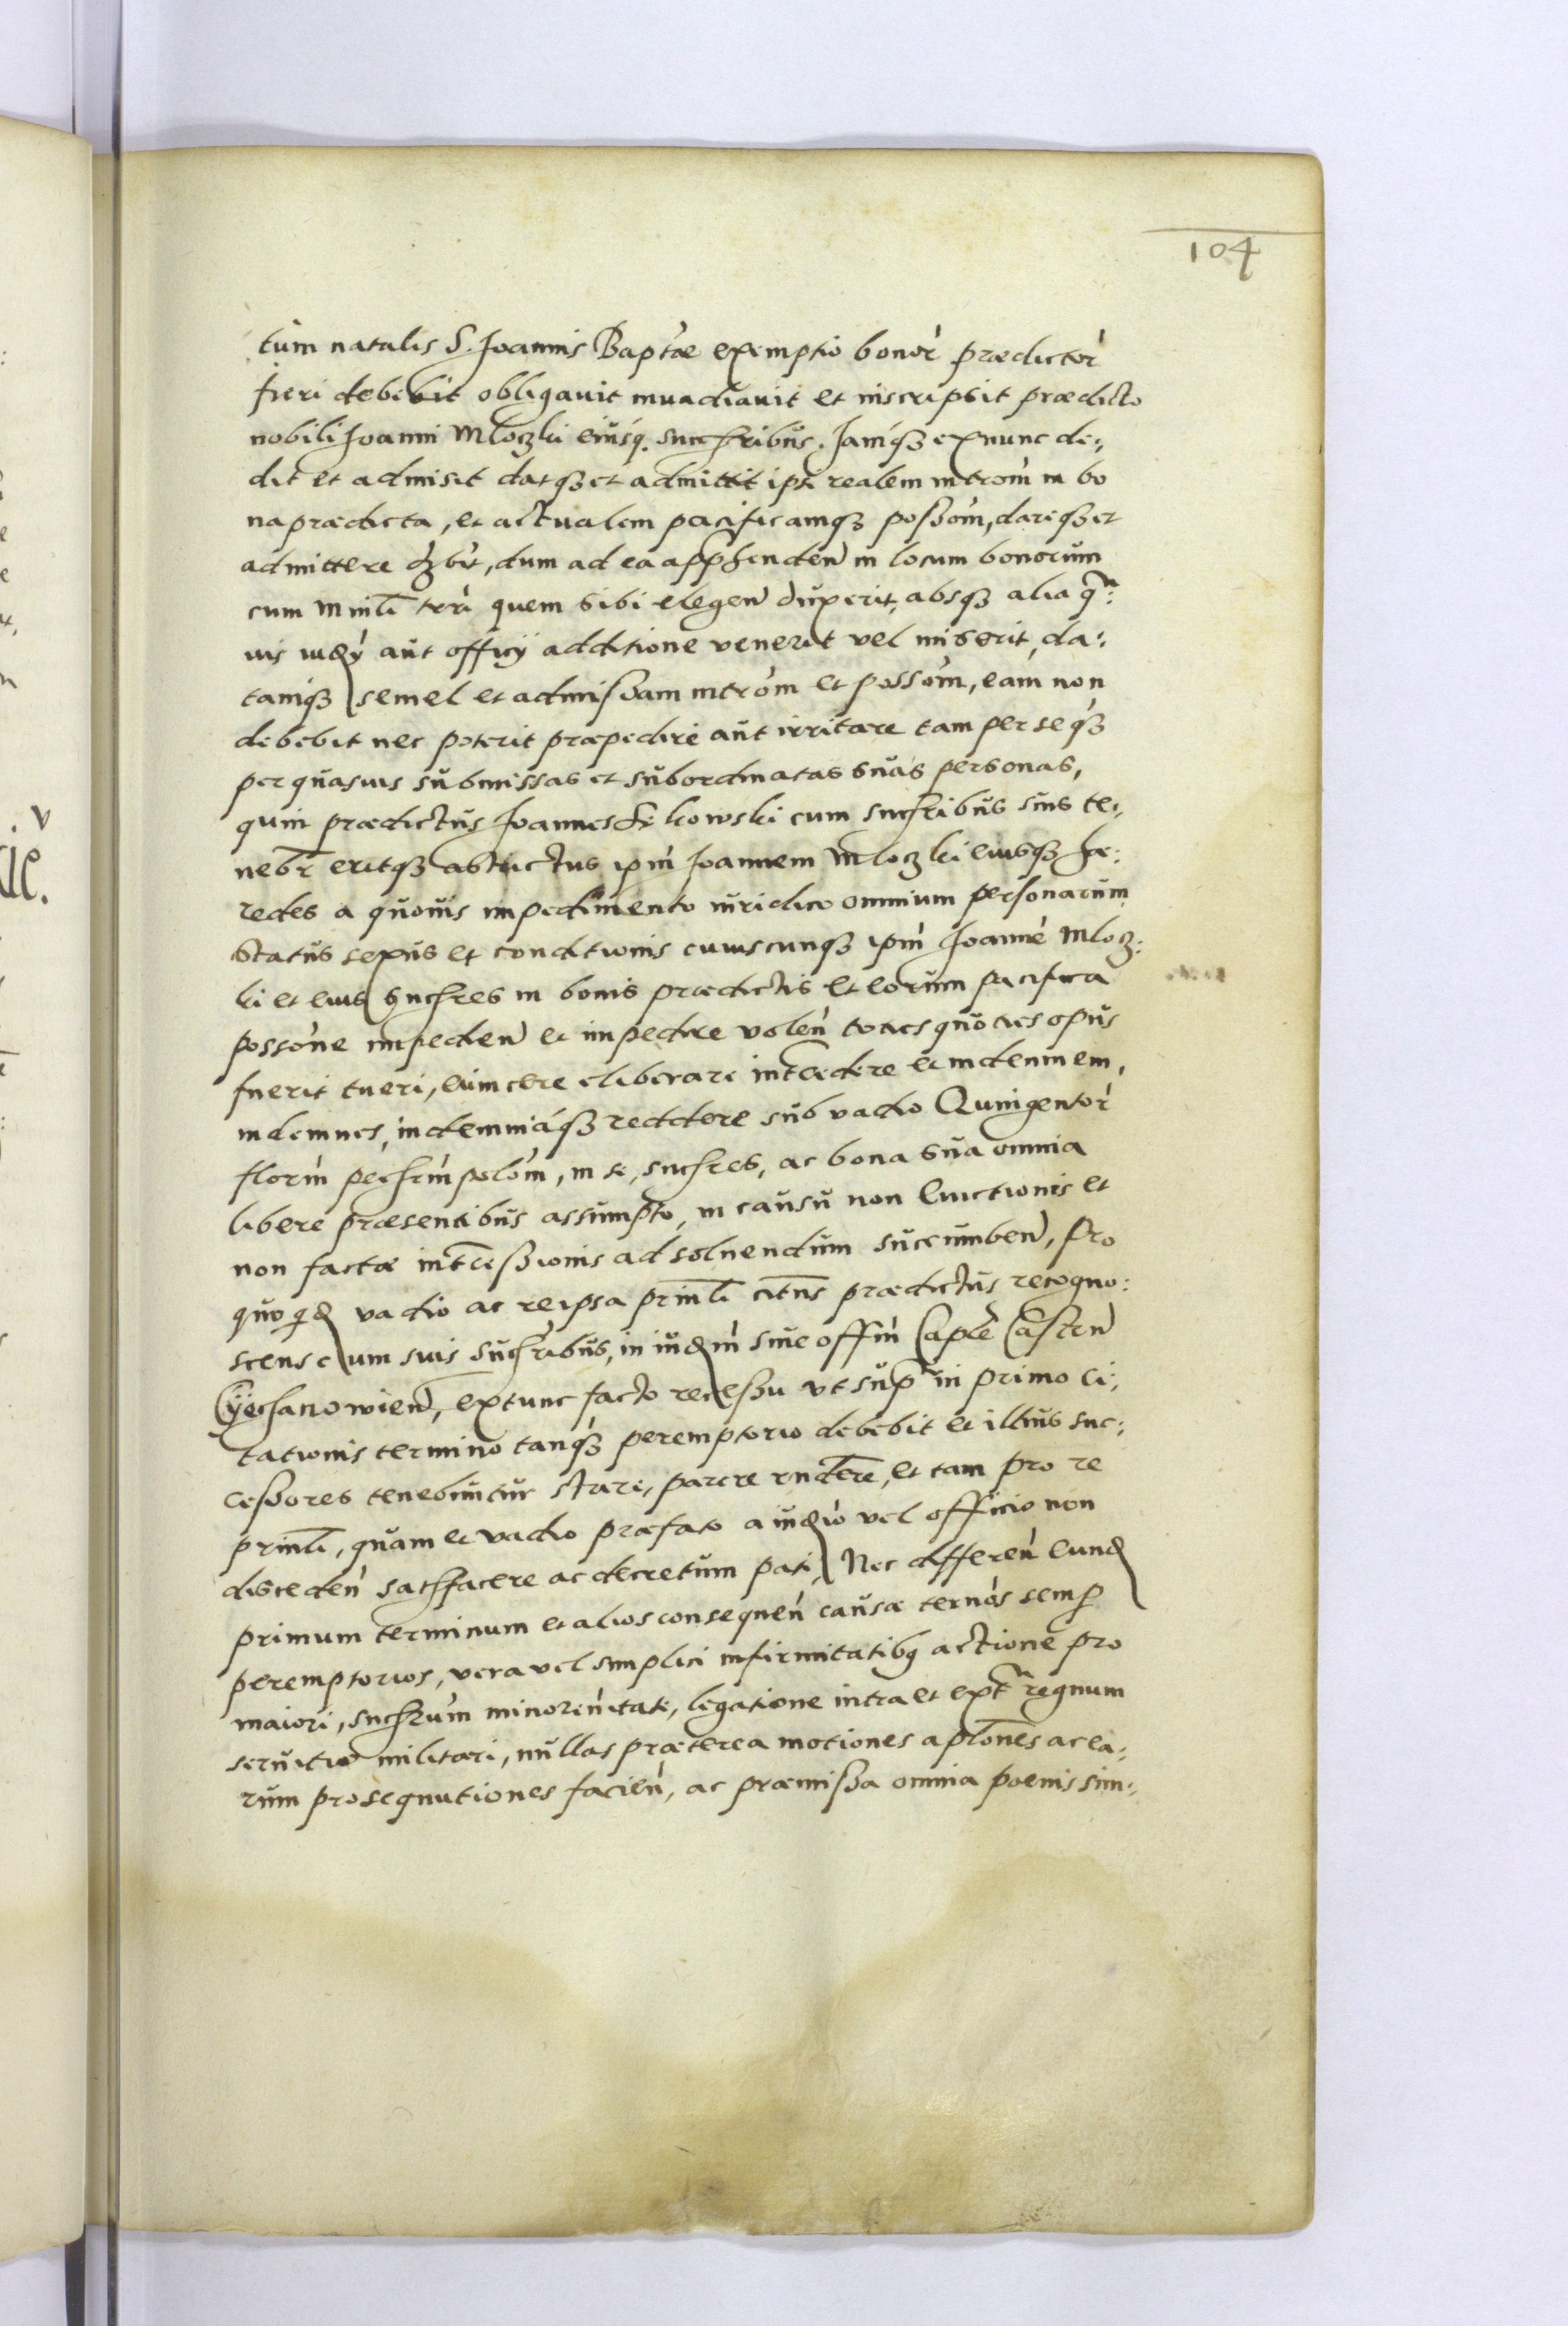 104
tum natalis S. Joannis Baptae exemptio bonor praedictor
fieri debebit obligavit invadiavit et inscripsit praedicto
nobili Joanni Mloczki eiusq. succribus. Jamqз exnunc de:
dit et admisit datqз et admittit ipsi realem introm in bo
na praedicta, et actualem pacificamqз possom, dareqз et
admittere dзbit, dum ad ea apphenden in locum bonorum
cum minli teri quem sibi elegen duxerit, absqз alia qa:
vis iudy aut officij additione venerit vel miserit, da:
tamqз semel et admissam introm et possom, eam non
debebit nec poterit praepedire aut irritare tam per se qз
per quasvis submissas et subordinatas suas personas,
quin praedictus Joannes kowski cum succribus suis te:
nebr eritqз astrictus ipm Joannem Mloczki eiusqз hae:
redes a quovis impedimento iuridico omnium personarum
status sexus et conditionis cuiuscunqз ipm Joanne Mlocz:
ki et eius succres in bonis praedictis et eorum pacifica
possone impedien et impedire volen toties quoties opus
fuerit tueri, evincere eliberare intcedere et indemnem,
indemnes, indemniaqз reddere sub vadio Quingentor
florm pechrm polom, in se, succres, ac bona sua omnia
libere praesentibus assumpto, in causu non Evictionis et
non factae intcessionis ad solvendum succumben, Pro
quo qd vadio ac re ipsa prinli citus praedictus recogno:
scens cum suis succribus, in iudm sive offm Caple Castren
Cyechanowien, extunc facto recessu ut supa in primo ci:
tationis termino tanqз peremptorio debebit et illius suc:
cessores tenebuntur stare, parere rndere, et tam pro re
prinli, quam et vadio praefato a iudio vel officio non
disceden satisfacere ac decretum pati, Nec differen eund
primum terminum et alios consequen causae ternos semp
peremptorios, vera vel simplici infirmitatibq actione pro
maiori, succrum minorenitate, legatione intra et exta regnum
servitio militari, nullas praeterea motiones aplones ac ea:
rum prosequutiones facien, ac praemissa omnia poenis sim: